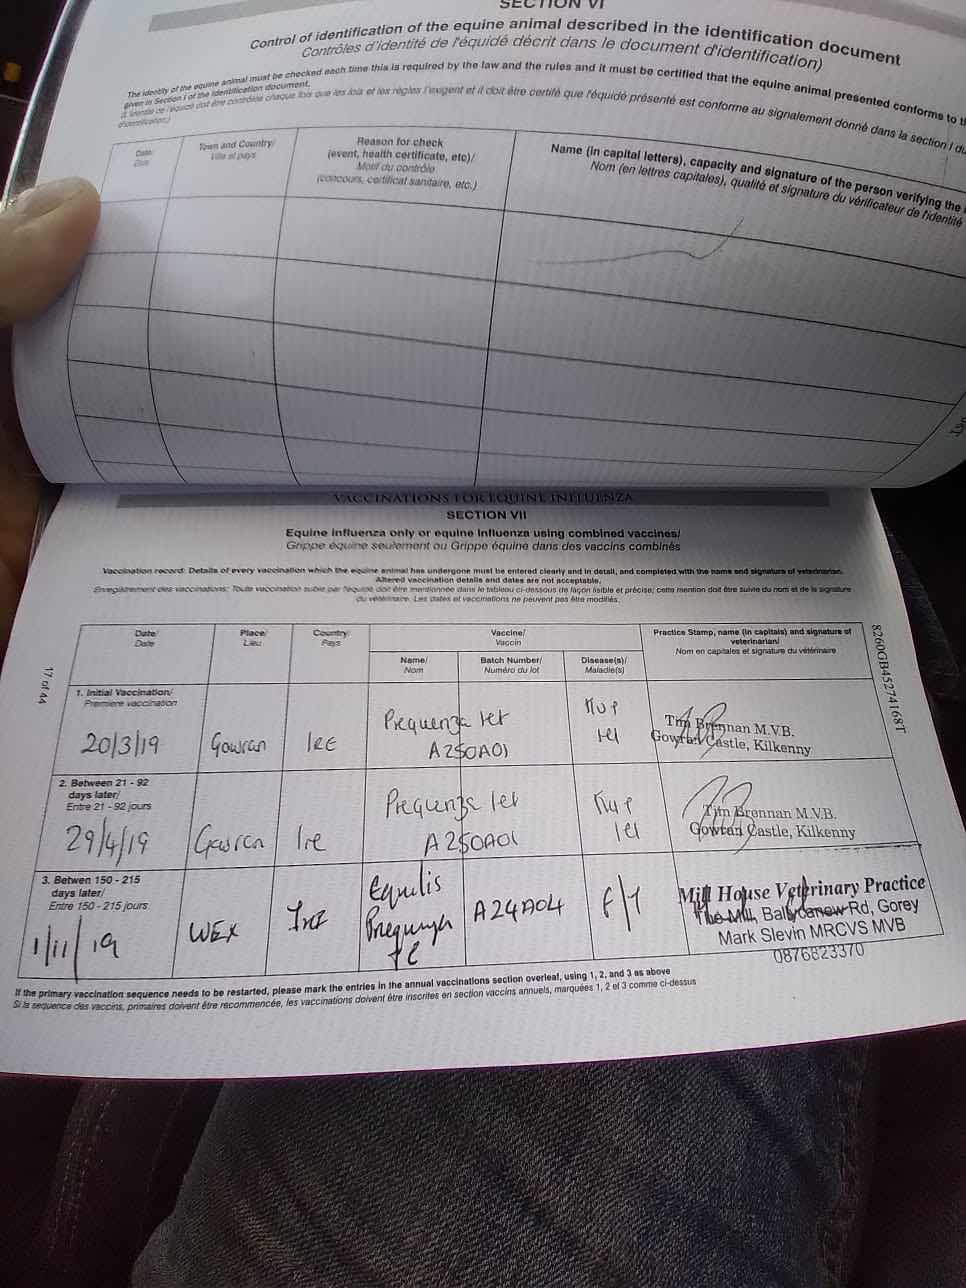 SECTION VI
Control of identification of the equine animal described in the identification document
Contrôles d'identité de l'équidé décrit dans le document d'identification)
The identity of the equine animal must be checked each time this is required by the law and the rules and it must be certified that the equine animal presented conforms to th
given in Section I of the identification document.
(L'identité de l'équidé doit être contrôlée chaque fois que les lois et les règles l'exigent et il doit être certifié que l'équidé présenté est conforme au signalement donné dans la section I du
d'identification.)
Date/
Date
Town and Country/
Ville et pays
Reason for check
(event, health certificate, etc)/
Motif du contrôle
(concours, certificat sanitaire, etc.)
Name (in capital letters), capacity and signature of the person verifying the
Nom (en lettres capitales), qualité et signature du vérificateur de l'identité
VACCINATIONS FOR EQUINE INFLUENZA
SECTION VII
Equine influenza only or equine influenza using combined vaccines/
Grippe équine seulement ou Grippe équine dans des vaccins combinés
Vaccination record: Details of every vaccination which the equine animal has undergone must be entered clearly and in detail, and completed with the name and signature of veterinarian.
Altered vaccination details and dates are not acceptable.
Enregistrement des vaccinations: Toute vaccination subie par l'équidé doit être mentionnée dans le tableau ci-dessous de façon lisible et précise; cette mention doit être suivie du nom et de la signature
du vétérinaire. Les dates et vaccinations ne peuvent pas être modifiés.
Date/
Date
Place/
Lieu
Country/
Pays
Vaccine/
Vaccin
Name/
Nom
Batch Number/
Numéro du lot
Disease(s)/
Maladie(s)
Practice Stamp, name (in capitals) and signature of
veterinarian/
Nom en capitales et signature du vétérinaire
1. Initial Vaccination/
Premiere vaccination
20/3/19
Gowran
IRE
Prequenza tet
A250A01
tet
Tim Brennan M.V.B.
Gowran Castle, Kilkenny
2. Between 21 - 92
days later/
Entre 21 - 92 jours
29/4/19
Gowran
Ire
Prequenza tet
A250A01
tet
Tim Brennan M.V.B.
Gowran Castle, Kilkenny
3. Betwen 150 - 215
days later/
Entre 150 - 215 jours
1/11/19
WEX
Equilis
Prequenza
te
A24A04
F/T
Mill House Veterinary Practice
The Mill, Ballycanew Rd, Gorey
Mark Slevin MRCVS MVB
0876823370
If the primary vaccination sequence needs to be restarted, please mark the entries in the annual vaccinations section overleaf, using 1, 2, and 3 as above
Si la sequence des vaccins, primaires doivent être recommencée, les vaccinations doivent être inscrites en section vaccins annuels, marquées 1, 2 et 3 comme ci-dessus
17 of 44
8260GB45274168T